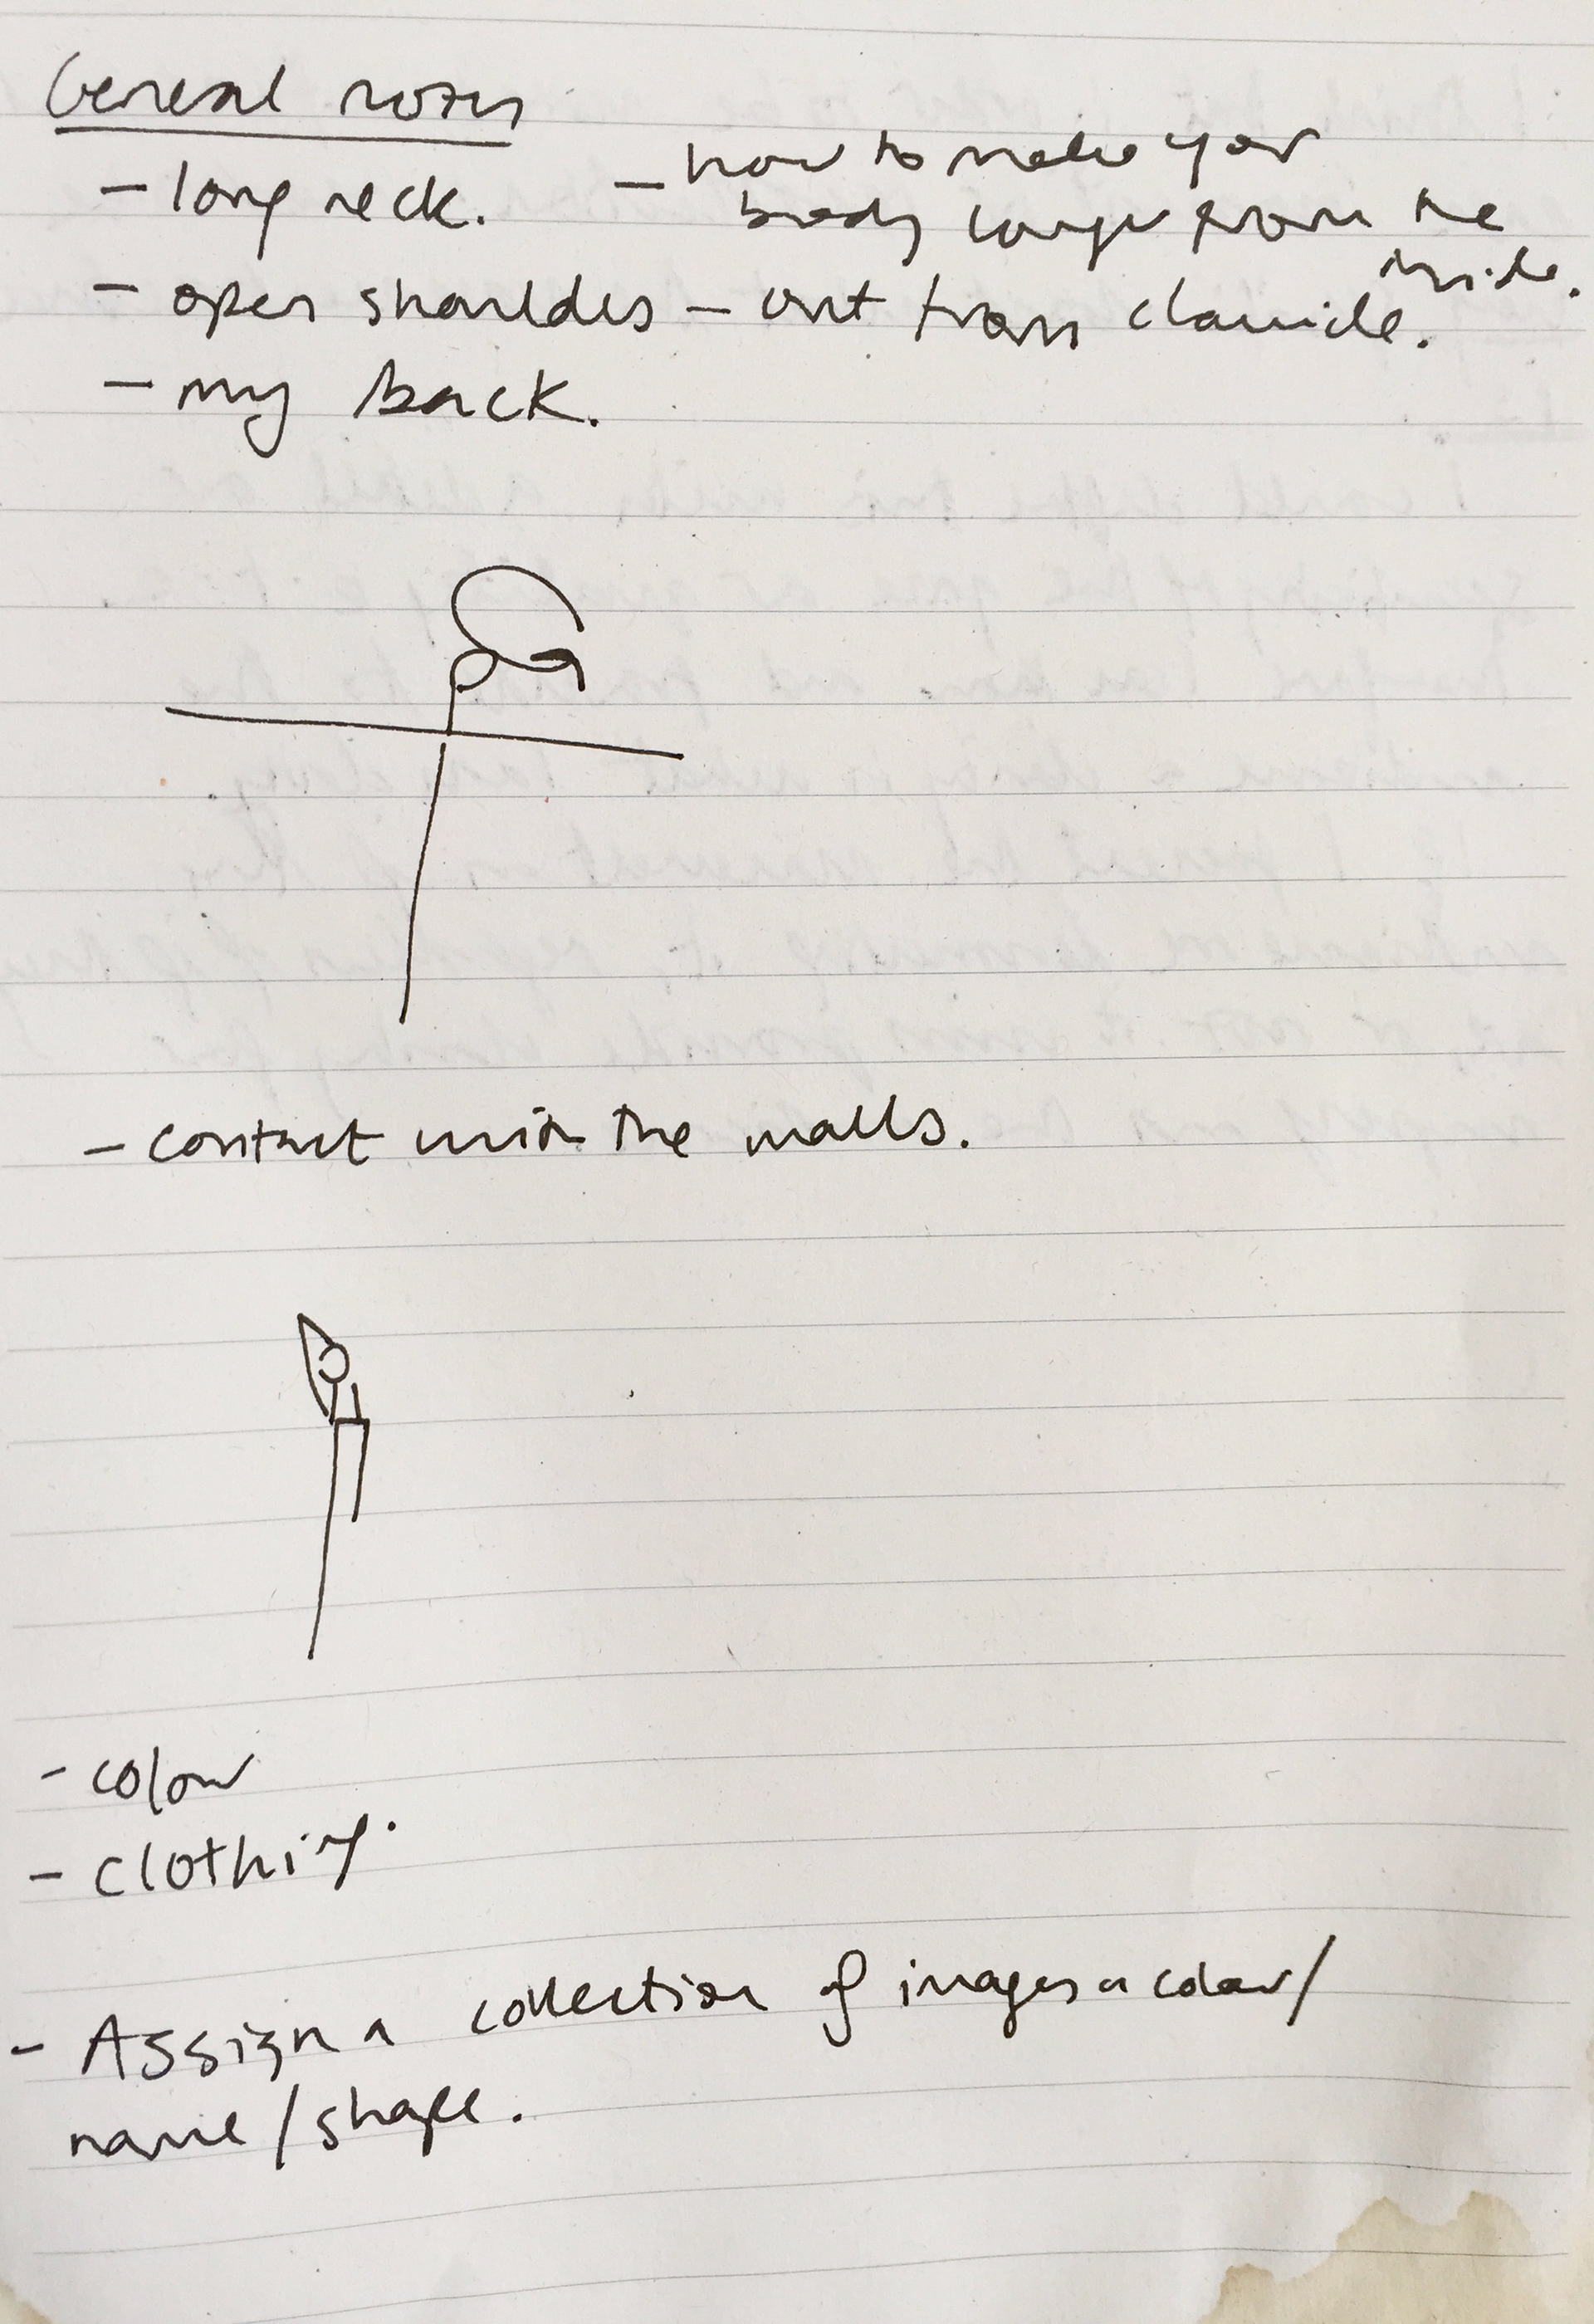 General notes
- long neck.
- how to make your
body longer from the
inside.
- open shoulders - out from clavicle.
- my back.
- contact with the walls.
- colour
- clothing.
- Assign a collection of images a colour/
name/shape.